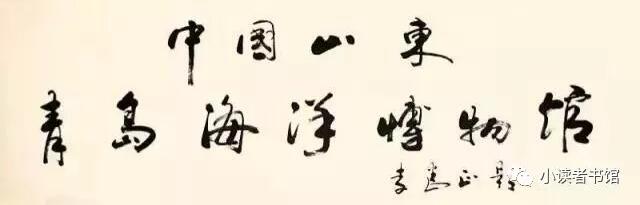 中國山東
青島海洋博物馆
李建正題
小读者书馆